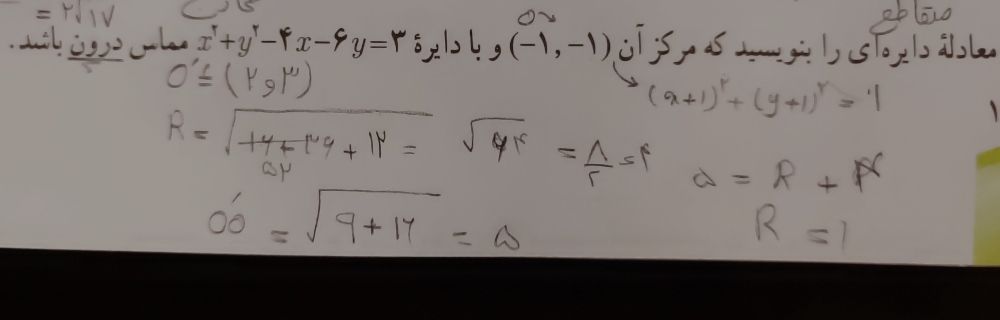 = ۲√۱۷
متقاطع
معادلهٔ دایره‌ای را بنویسید که مرکز آن (−۱, −۱) و با دایرهٔ x²+y²−۴x−۶y=۳ مماس درون باشد.
O′ = (۲و۳)
(x+۱)² + (y+۱)² = ۱
۱
R = √۱۶+۳۶+۱۲ = √۶۴ = ۸/۲ = ۴
۵۲
۵ = R + ۴
OO′ = √۹+۱۶ = ۵
R = ۱